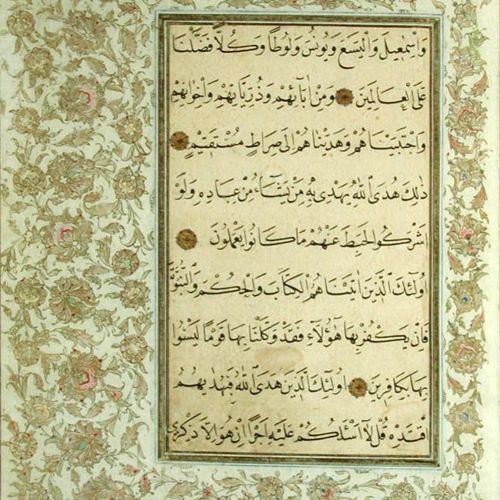 وَاِسْمٰعِيلَ وَالْيَسَعَ وَيُونُسَ وَلُوطًا وَكُلًّا فَضَّلْنَا
عَلَى الْعَالَمِينَ وَمِنْ اٰبَائِهِمْ وَذُرِّيَّاتِهِمْ وَاِخْوَانِهِمْ
وَاجْتَبَيْنَاهُمْ وَهَدَيْنَاهُمْ اِلٰى صِرَاطٍ مُسْتَقِيمٍ
ذٰلِكَ هُدَى اللّٰهِ يَهْدِى بِهِ مَنْ يَشَاءُ مِنْ عِبَادِهِ وَلَوْ
اَشْرَكُوا لَحَبِطَ عَنْهُمْ مَا كَانُوا يَعْمَلُونَ
اُولٰئِكَ الَّذِينَ اٰتَيْنَاهُمُ الْكِتَابَ وَالْحُكْمَ وَالنُّبُوَّةَ
فَاِنْ يَكْفُرْ بِهَا هٰؤُلَاءِ فَقَدْ وَكَّلْنَا بِهَا قَوْمًا لَيْسُوا
بِهَا بِكَافِرِينَ اُولٰئِكَ الَّذِينَ هَدَى اللّٰهُ فَبِهُدٰيهُمُ
اقْتَدِهْ قُلْ لَا اَسْئَلُكُمْ عَلَيْهِ اَجْرًا اِنْ هُوَ اِلَّا ذِكْرٰى